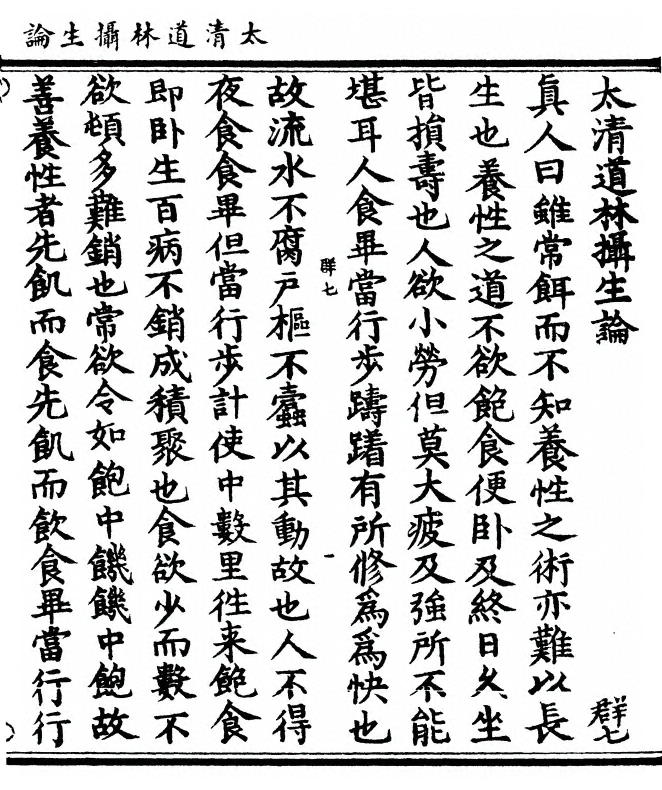 太清道林攝生論
太清道林攝生論
群七
眞人曰雖常餌而不知養性之術亦難以長
生也養性之道不欲飽食便卧及終日久坐
皆損壽也人欲小勞但莫大疲及強所不能
堪耳人食畢當行步躊躇有所修爲爲快也
群七
故流水不腐戶樞不蠹以其動故也人不得
夜食食畢但當行步計使中數里徃来飽食
即卧生百病不銷成積聚也食欲少而數不
欲頓多難銷也常欲令如飽中饑饑中飽故
善養性者先飢而食先飢而飲食畢當行行